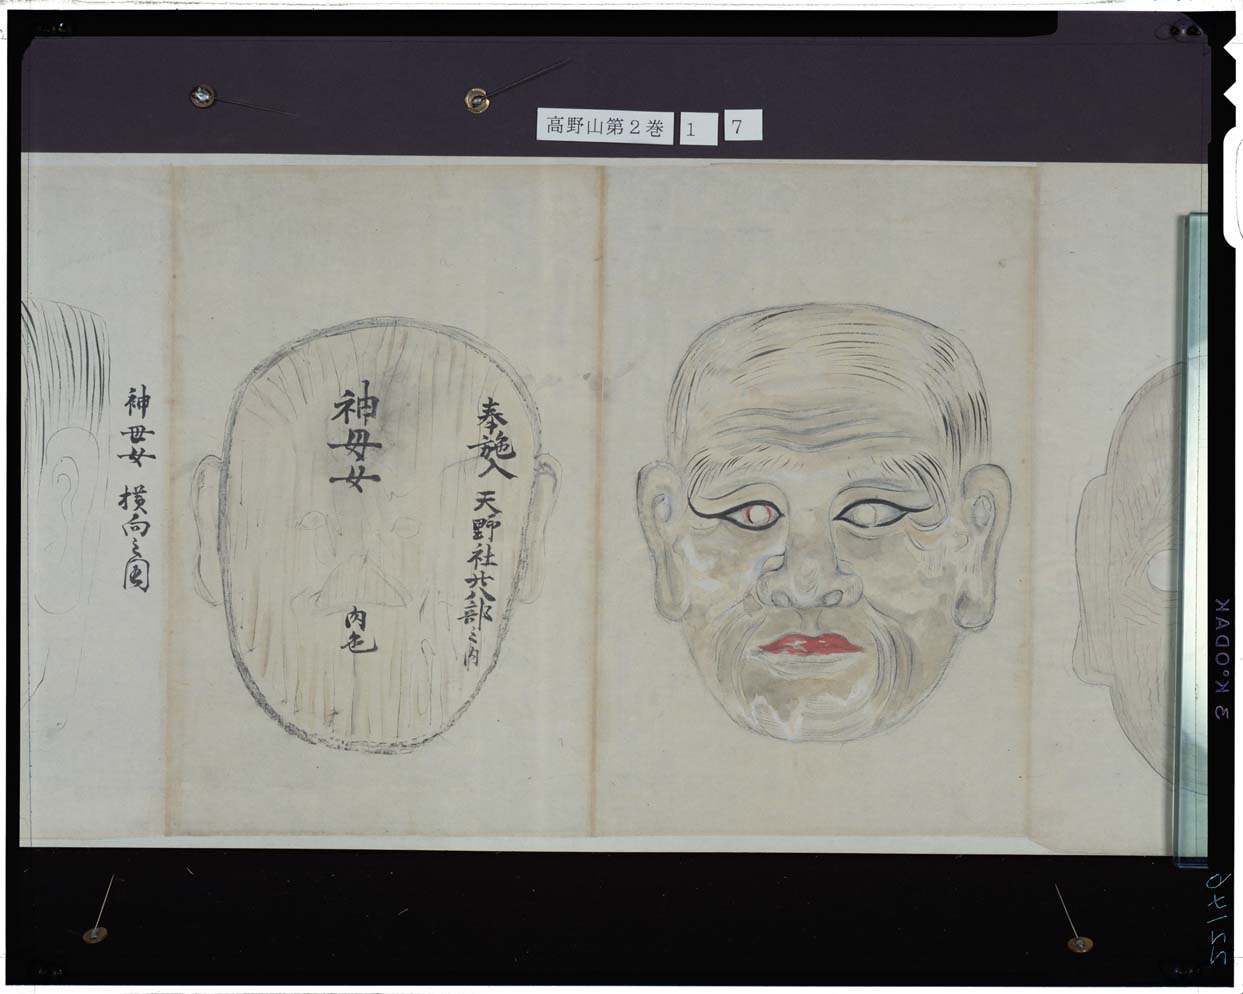 高野山第2巻 1 7
奉施入 天野社廿八部之内
神母女
内色
神母女 横向之図
3 KODAK
22/40